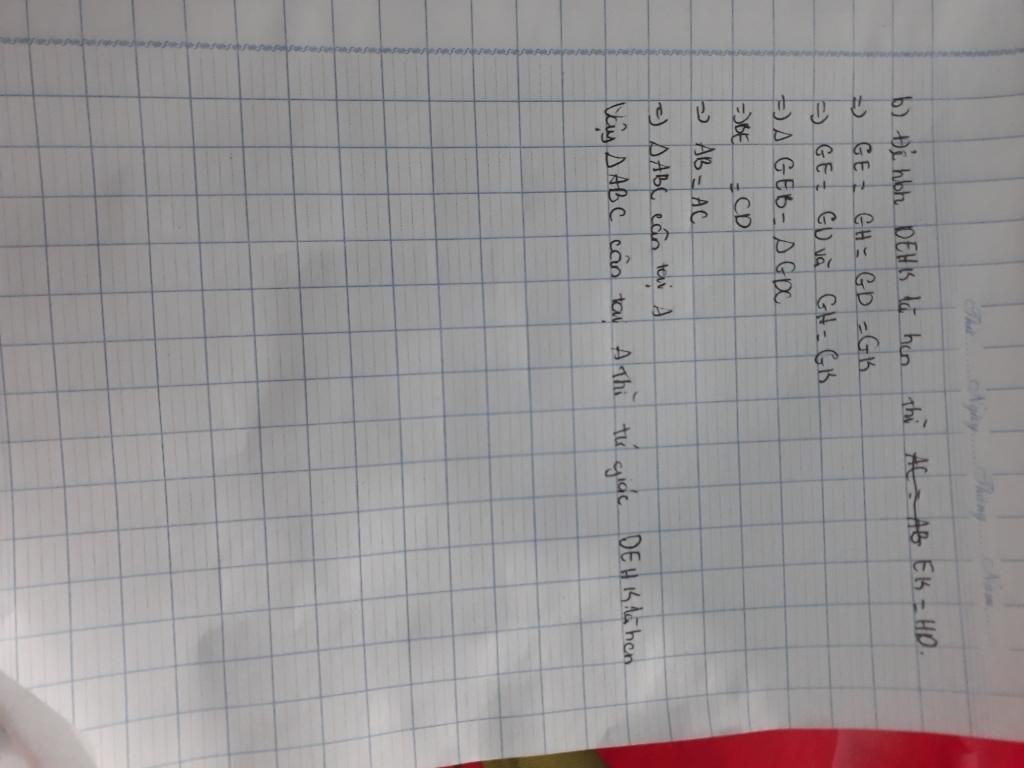 Thứ......Ngày......Tháng......Năm......
b) Để hbh DEHK là hcn thì AC = AB EK = HD.
=) GE = GH = GD = GK
=) GE = GD và GH = GK
=) Δ GEB = Δ GDC
=) BE = CD
=) AB = AC
=) ΔABC cân tại A
Vậy ΔABC cân tại A thì tứ giác DEHK là hcn